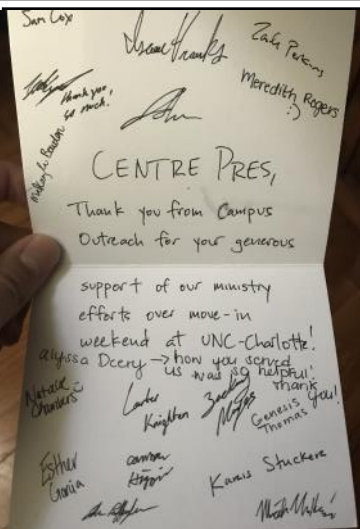 Sam Cox
Isaac Franks
Zach Perkins
Meredith Rogers
:)
Thank you,
so much.
CENTRE PRES,
Thank you from Campus
Outreach for your generous
support of our ministry
efforts over move-in
weekend at UNC-Charlotte!
Alyssa Deery → how you served
us was so helpful!
Thank
you!
Natasha
Chambers
Knighten
Genesis
Thomas
Esther
Kamis Stuckere